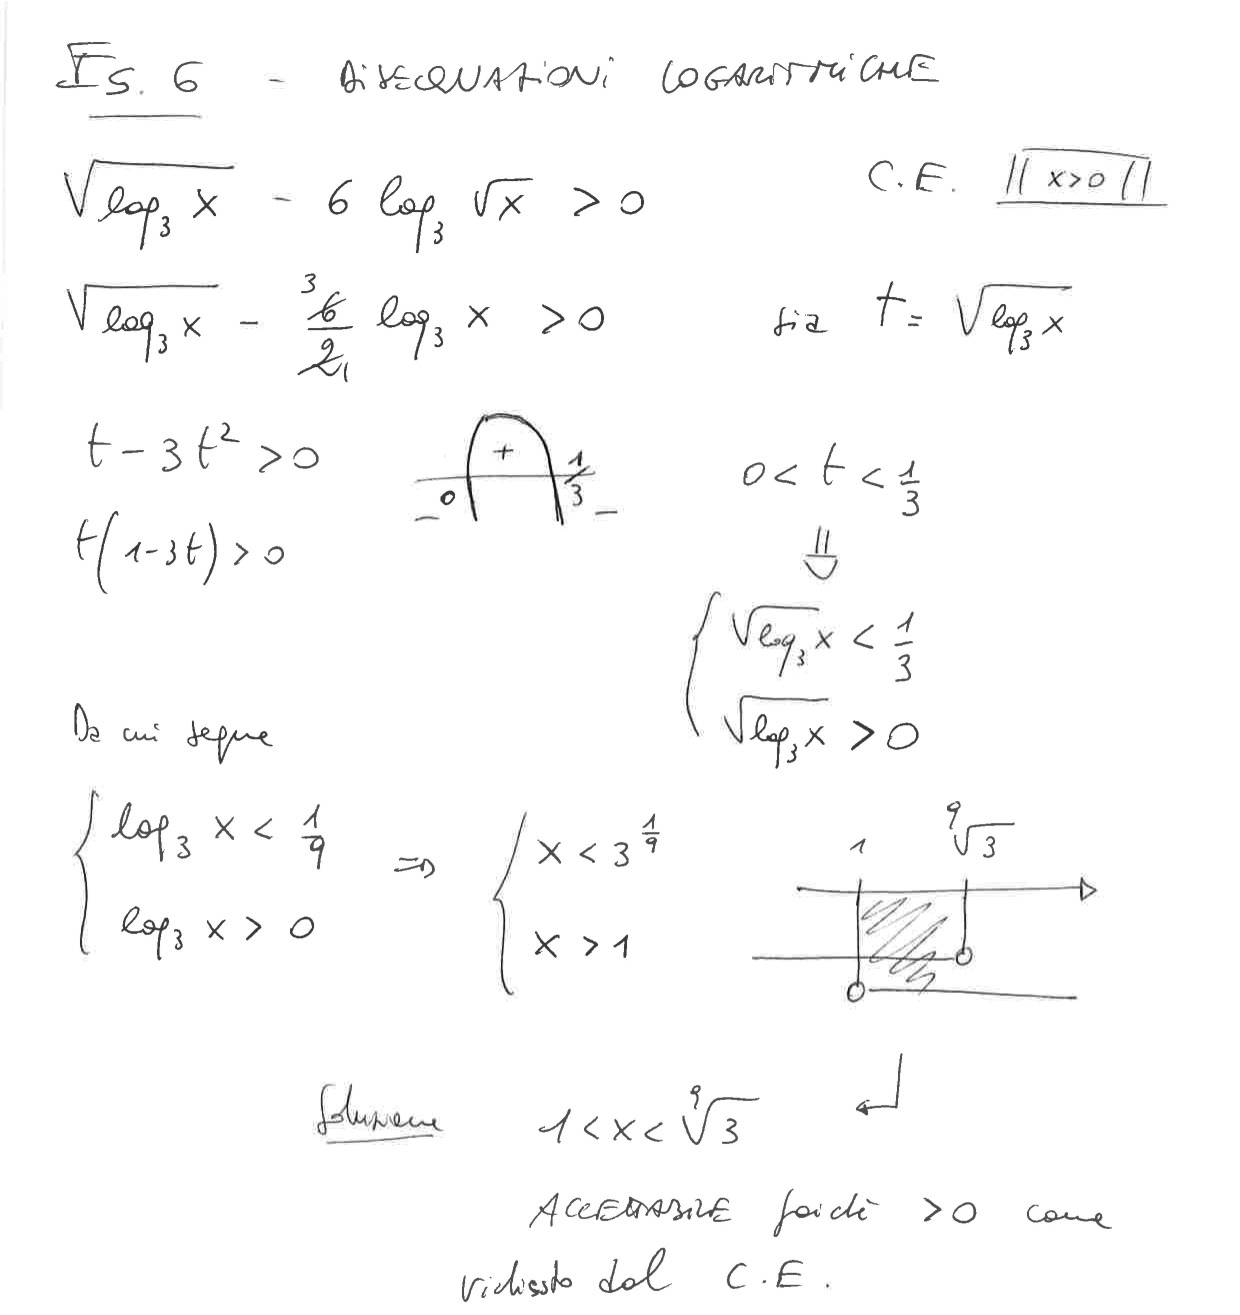 Es. 6 - DISEQUAZIONI LOGARITMICHE
√(log₃ x) - 6 log₃ √x > 0
C.E. || x>0 ||
√(log₃ x) - ³6/2₁ log₃ x > 0
sia t = √(log₃ x)
t - 3t² > 0
+
0 1/3
- -
0 < t < 1/3
t(1-3t) > 0
⇓
{ √(log₃ x) < 1/3
√(log₃ x) > 0
Da cui segue
{ log₃ x < 1/9 ⇒ { x < 3^(1/9)
log₃ x > 0 x > 1
1 ⁹√3
Soluzione 1 < x < ⁹√3
ACCETTABILE poiché > 0 come
richiesto dal C.E.